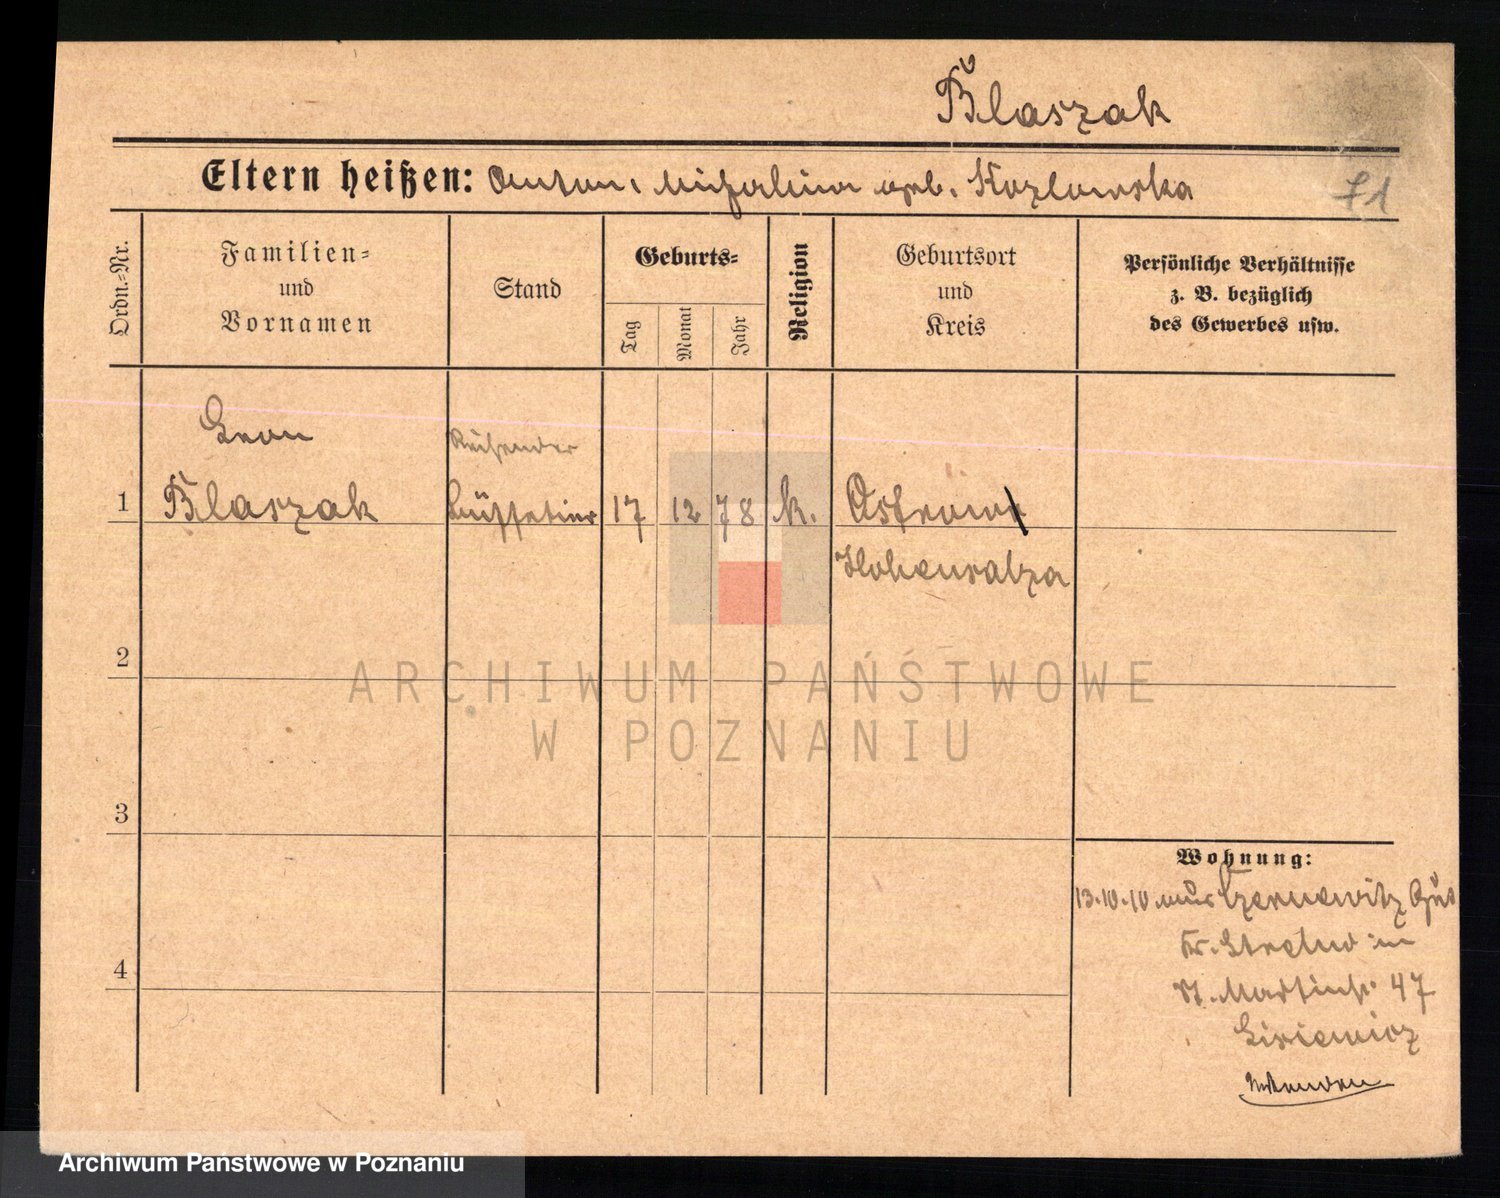 Blaszak
Eltern heißen: Anton, Michalina geb. Kozlowska
71
Ordn.=Nr.
Familien=
und
Vornamen
Stand
Geburts=
Tag
Monat
Jahr
Religion
Geburtsort
und
Kreis
Persönliche Verhältnisse
z. B. bezüglich
des Gewerbes usw.
Leon
Reisender
1 Blaszak 17 12 78 k. Ostrowo
Hohensalza
2
3
4
ARCHIWUM PAŃSTWOWE
W POZNANIU
Wohnung:
13.10.10 aus
Kr. Strelno in
St. Martinstr 47
Archiwum Państwowe w Poznaniu